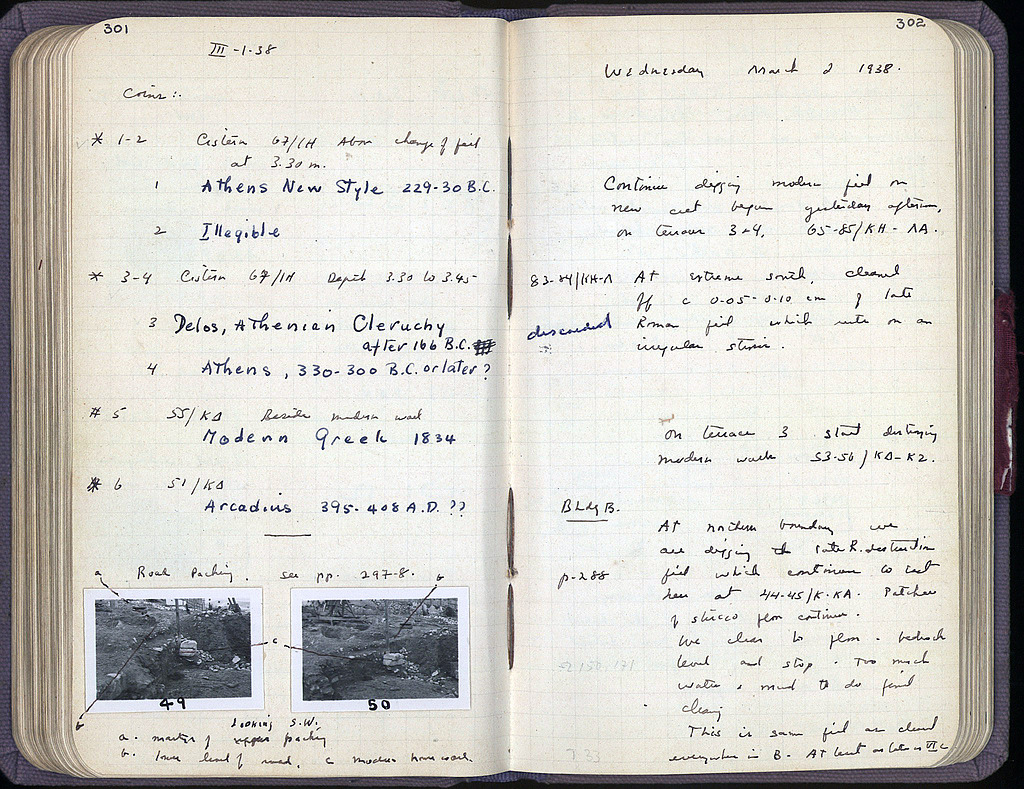 301
III-1-38
Coins:.
* 1-2 Cistern G7/IH Above change of fill
at 3.30 m.
1 Athens New Style 229-30 B.C.
2 Illegible
* 3-4 Cistern G7/IH Depth 3.30 to 3.45
3 Delos, Athenian Cleruchy
after 166 B.C.
4 Athens, 330-300 B.C. or later?
# 5 55/KΔ Beside modern wall
Modern Greek 1834
* 6 51/KΔ
Arcadius 395-408 A.D. ??
a Road Packing. see pp. 297-8. b
c
49 50
b
Looking S.W.
a. of packing
b. lower level of road. c modern house wall.
302
Wednesday March 2 1938.
Continue digging modern fill on
new cut begun yesterday afternoon,
on terrace 3+4, 65-85/KH-ΛA.
83-84/KH-Λ At extreme south, cleaned
off c 0.05-0.10 cm of late
discarded Roman fill which rests on an
irregular
on terrace 3 start destroying
modern walls 53-56/KΔ-KZ.
Bldg B.
At northern boundary we
are digging the late R. destruction
p-288 fill which continues to east
here at 44-45/K-KA. Patches
of stucco floor continue.
We clear to floor - bedrock
level and stop. Too much
water & mud to do final
This is same fill as cleared
everywhere in B. At least as late as VI c